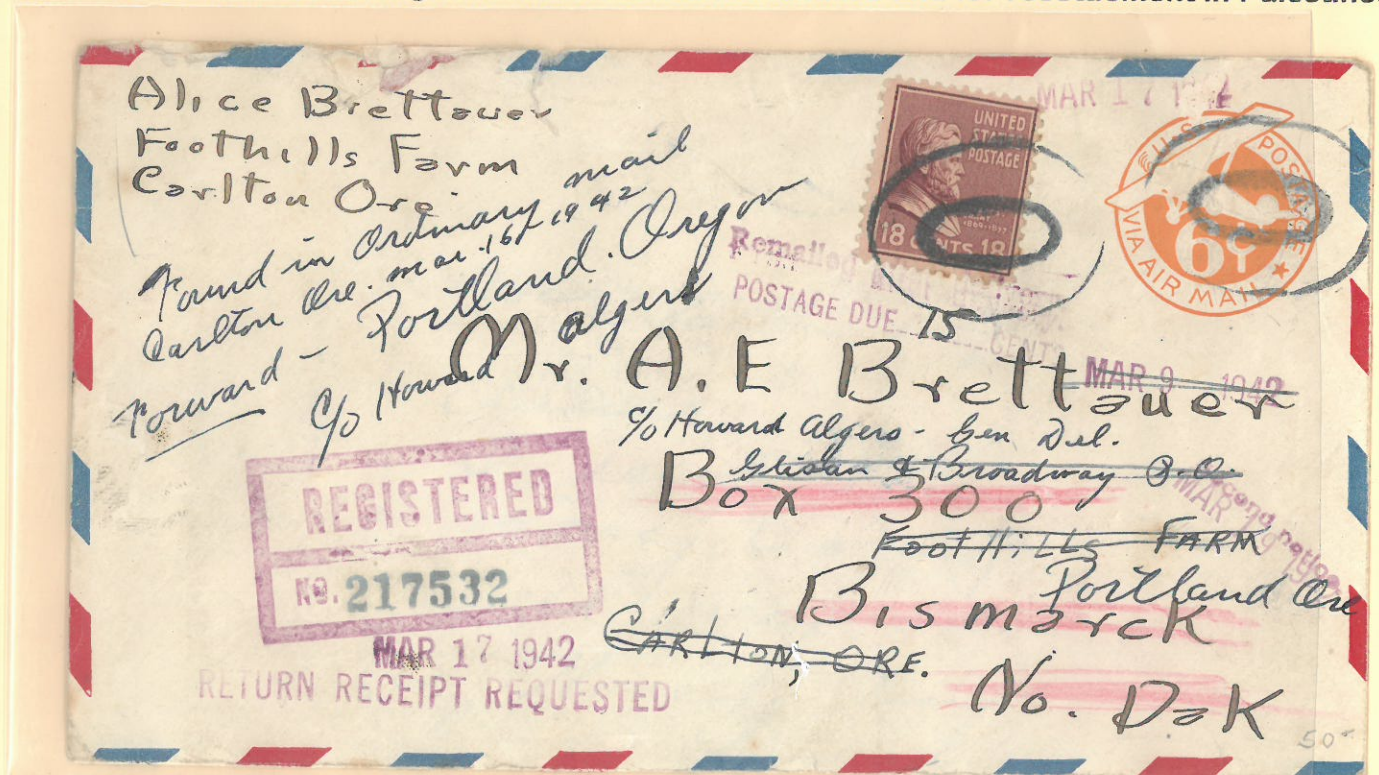 in Palestine
Alice Brettauer
Foothills Farm
Carlton Ore
Found in Ordinary mail
Carlton Ore. Mar. 16, 1942
Forward - Portland. Oregon
c/o Howard Algers
MAR 17
UNITED
STATES
POSTAGE
18 CENTS 18
U.S. POSTAGE
6¢
VIA AIR MAIL
Remailed
POSTAGE DUE 15 CENTS
MAR 9 1942
Mr. A. E Brettauer
c/o Howard Algers - Gen Del.
Glisan & Broadway P.O.
Box 300
Second notice
MAR 19
Foot Hills FARM
Portland Ore
Bismarck
CARLTON, ORE.
No. Dak
REGISTERED
No. 217532
MAR 17 1942
RETURN RECEIPT REQUESTED
50